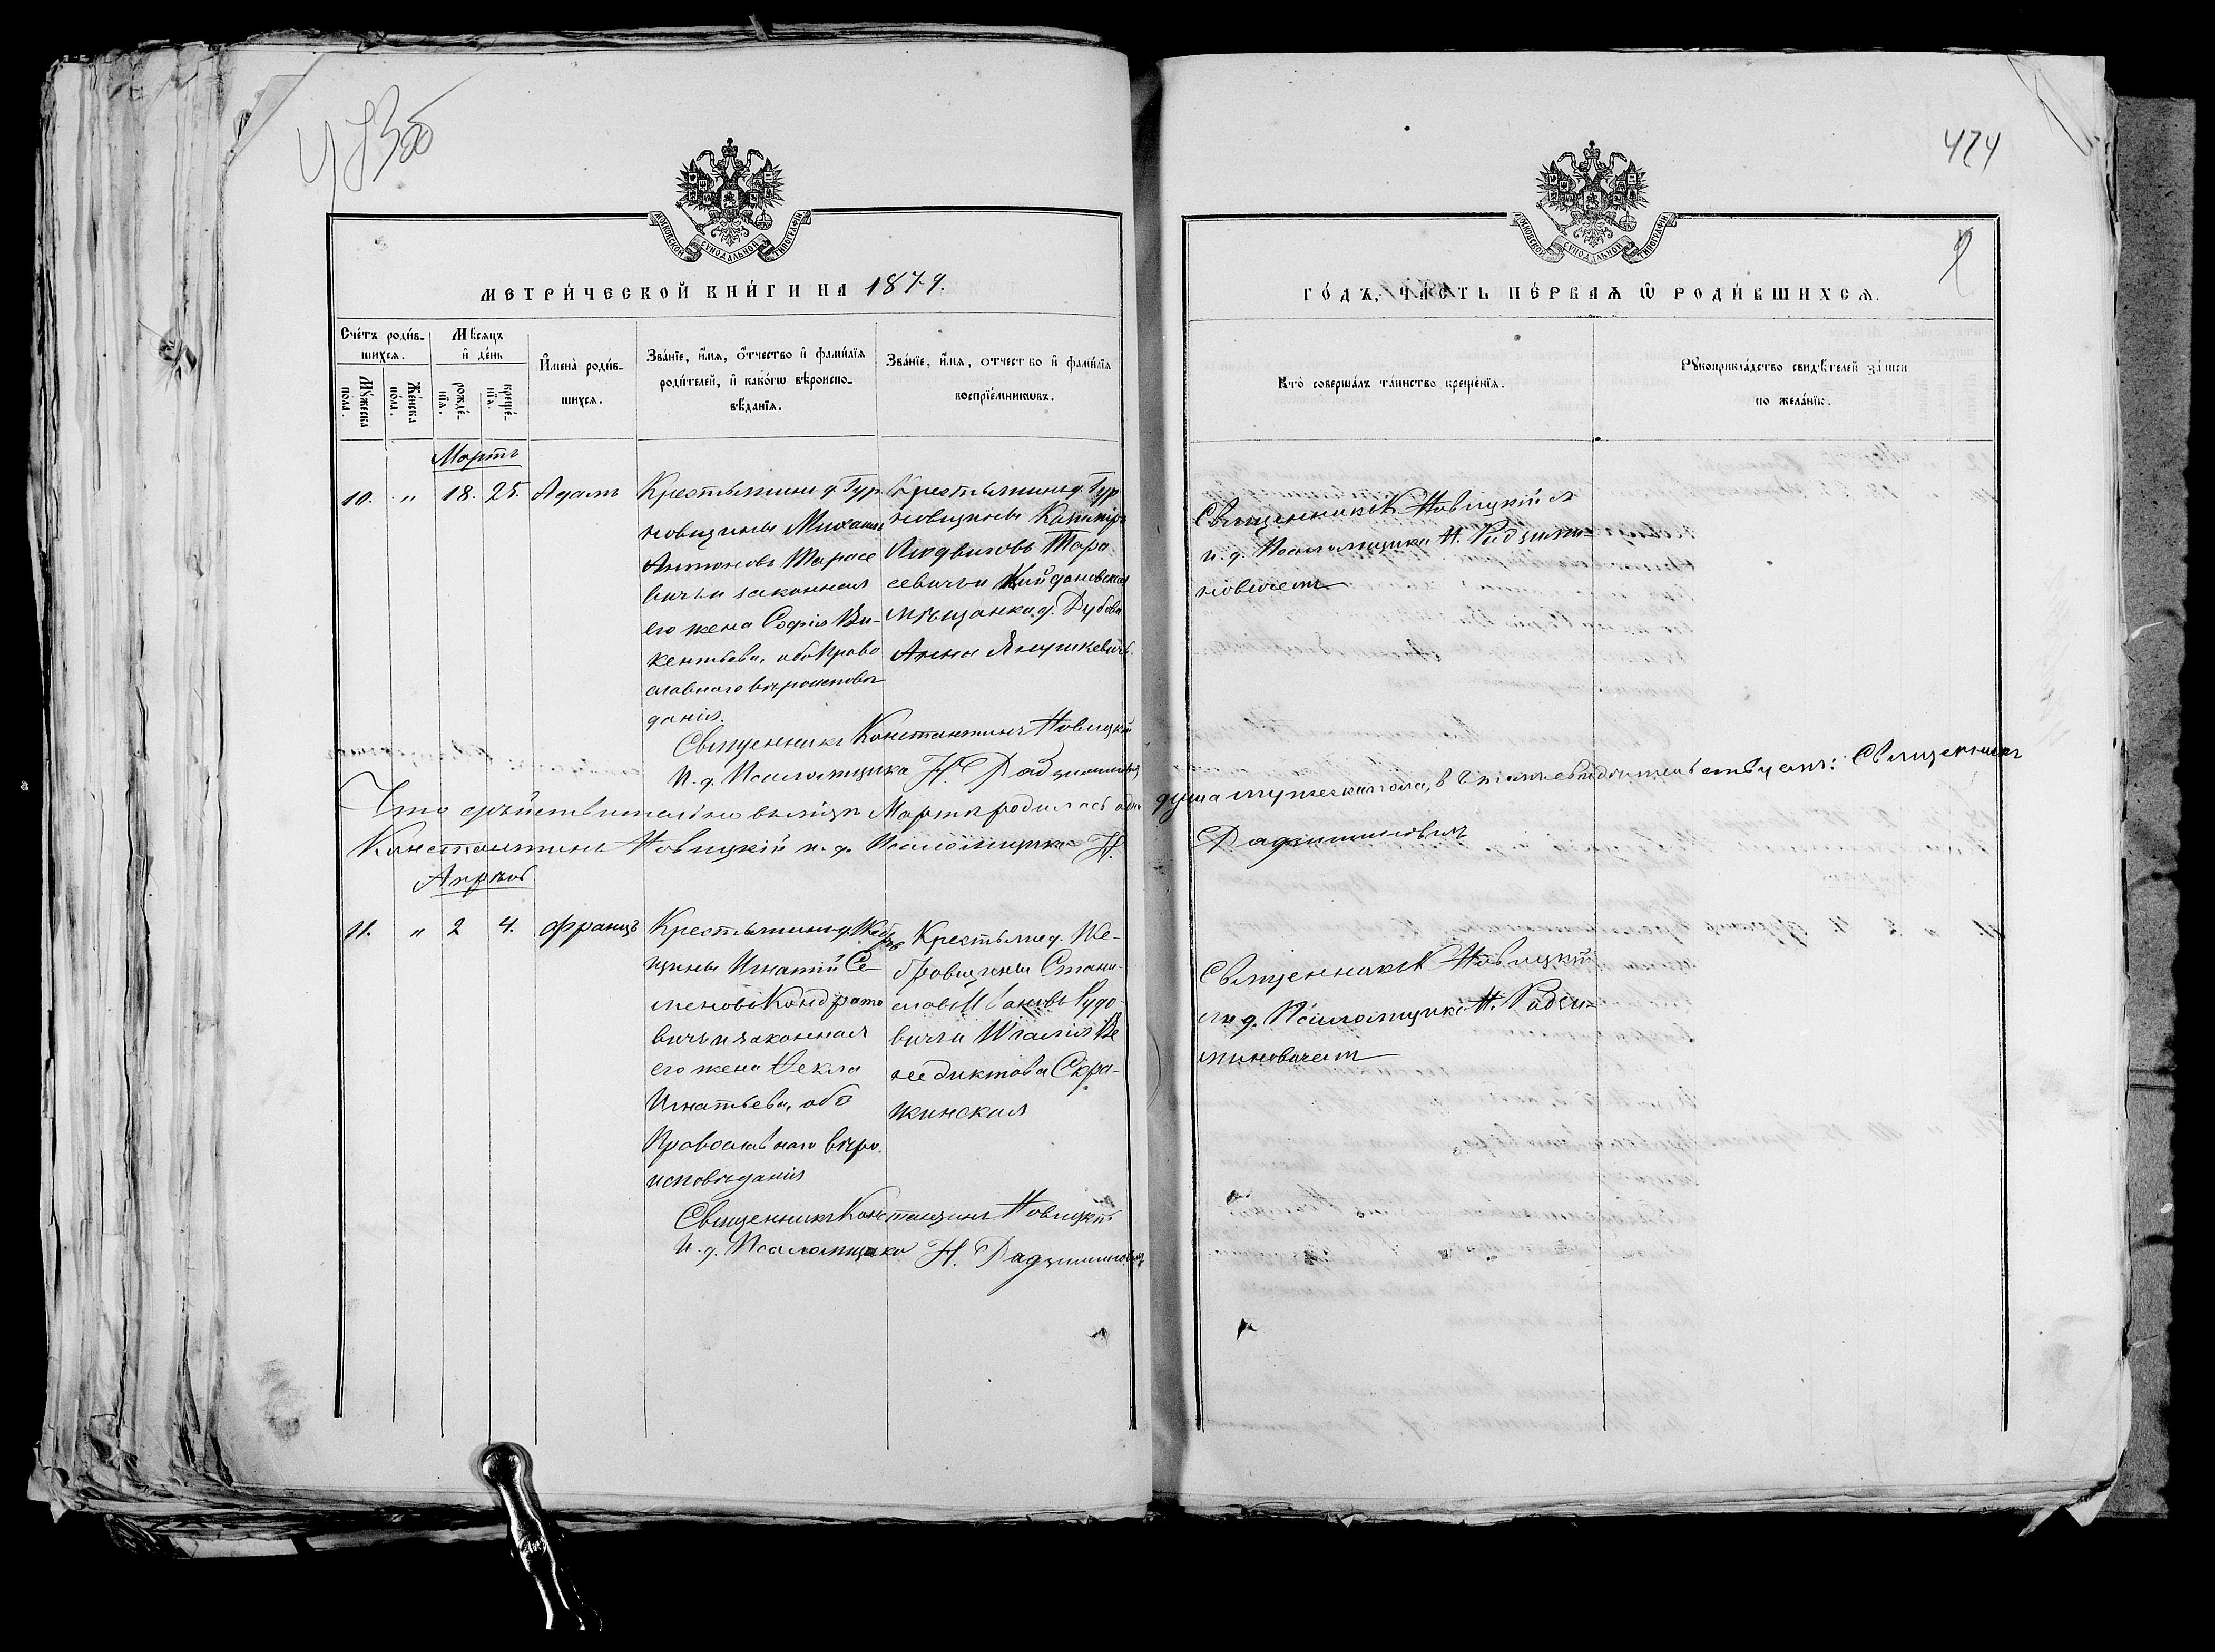 424
МОСКОВСКОЙ СѴНОДАЛЬНОЙ ТИПОГРАФІИ
МОСКОВСКОЙ СѴНОДАЛЬНОЙ ТИПОГРАФІИ
МЕТРИ́ЧЕСКОЙ КНИ́ГИ НА 1879.
ГО́ДЪ, ЧА́СТЬ ПЕ́РВАЯ Ѿ РОДИ́ВШИХСЯ.
Сче́тъ роди́в-
шихся.
Мѣсяцъ
и де́нь
Мꙋ́жеска
пола.
Же́нска
по́ла.
рожде́-
нїя.
креще́-
нїя.
Имена̀ роди́в-
шихся.
Зва́нїе, и́мя, о́тчество и фами́лїя
роди́телей, и како́гѡ вѣроиспо-
вѣ́данїя.
Зва́нїе, и́мя, отчество и фами́лїя
воспрїе́мникѡвъ.
Кто̀ соверша́лъ та́инство креще́нїя.
Рꙋкоприкла́дство свидѣ́телей за́писи
по жела́нїю.
Мартъ
10. „ 18. 25. Адамъ
Крестьянинъ д. Тур
новщины Михаилъ
Антоновъ Тарасе
вичъ и законная
его жена Софія Ви-
кентьева, оба Право
славнаго вѣроисповѣ
данія.
Крестьянинъ д. Тур
новщины Казиміръ
Людвиговъ Тара
севичъ и Койдановская
мѣщанка д. Дубова
Анна Янушкевичъ.
Священникъ К. Новицкій с
и. д. Псаломщика Н. Радзими-
новичемъ
Священникъ Константинъ Новицкій
И. д. Псаломщика Н. Радзиминовичъ
Что дѣйствительно въ мѣсяцѣ Мартѣ родилась одна душа мужеска пола, въ томъ свидѣтельствуемъ: Священникъ
Константинъ Новицкій и. д. Псаломщика Н. Радзиминовичъ
Апрѣль
11. „ 2 4. Францъ
Крестьянинъ д. Жебров
щины Игнатій Се-
меновъ Кондрато
вичъ и законная
его жена Ѳекла
Игнатьева, оба
Православнаго вѣро
исповѣданія
Крестьяне д. Же-
бровщины Стани-
славъ Ивановъ Рудо-
вичъ и Юлія Ве
недиктова Скра-
жинская
Священникъ К. Новицкій
с и. д. Псаломщика Н. Радзи-
миновичемъ
Священникъ Константинъ Новицкій
И. д. Псаломщика Н. Радзиминовичъ